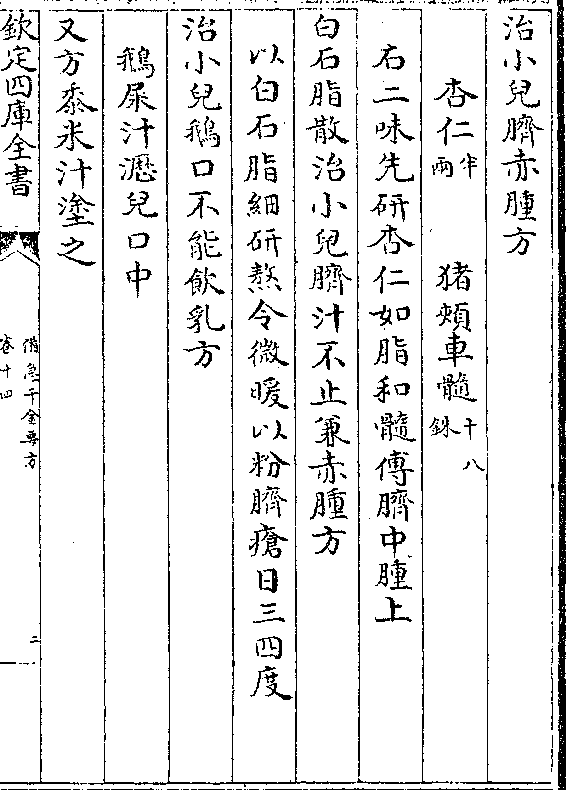 治小兒臍赤腫方
杏仁半兩　猪頰車髓十八銖
右二味先研杏仁如脂和髓傅臍中腫上
白石脂散治小兒臍汁不止兼赤腫方
以白石脂細研熬令微暖以粉臍瘡日三四度
治小兒鵝口不能飲乳方
鵝屎汁瀝兒口中
又方黍米汁塗之
欽定四庫全書
備急千金要方
卷十四
二